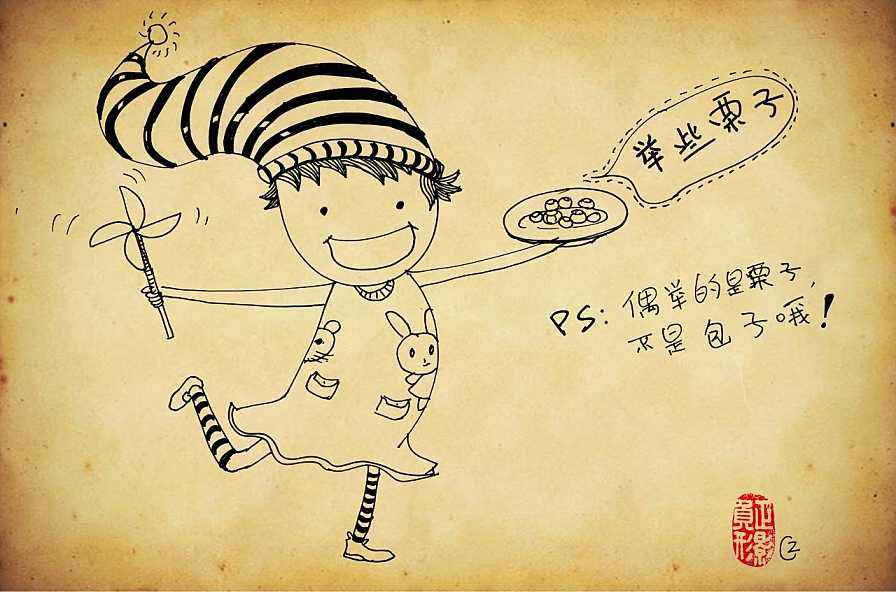 举些栗子
PS: 偶举的是栗子,
不是包子哦!